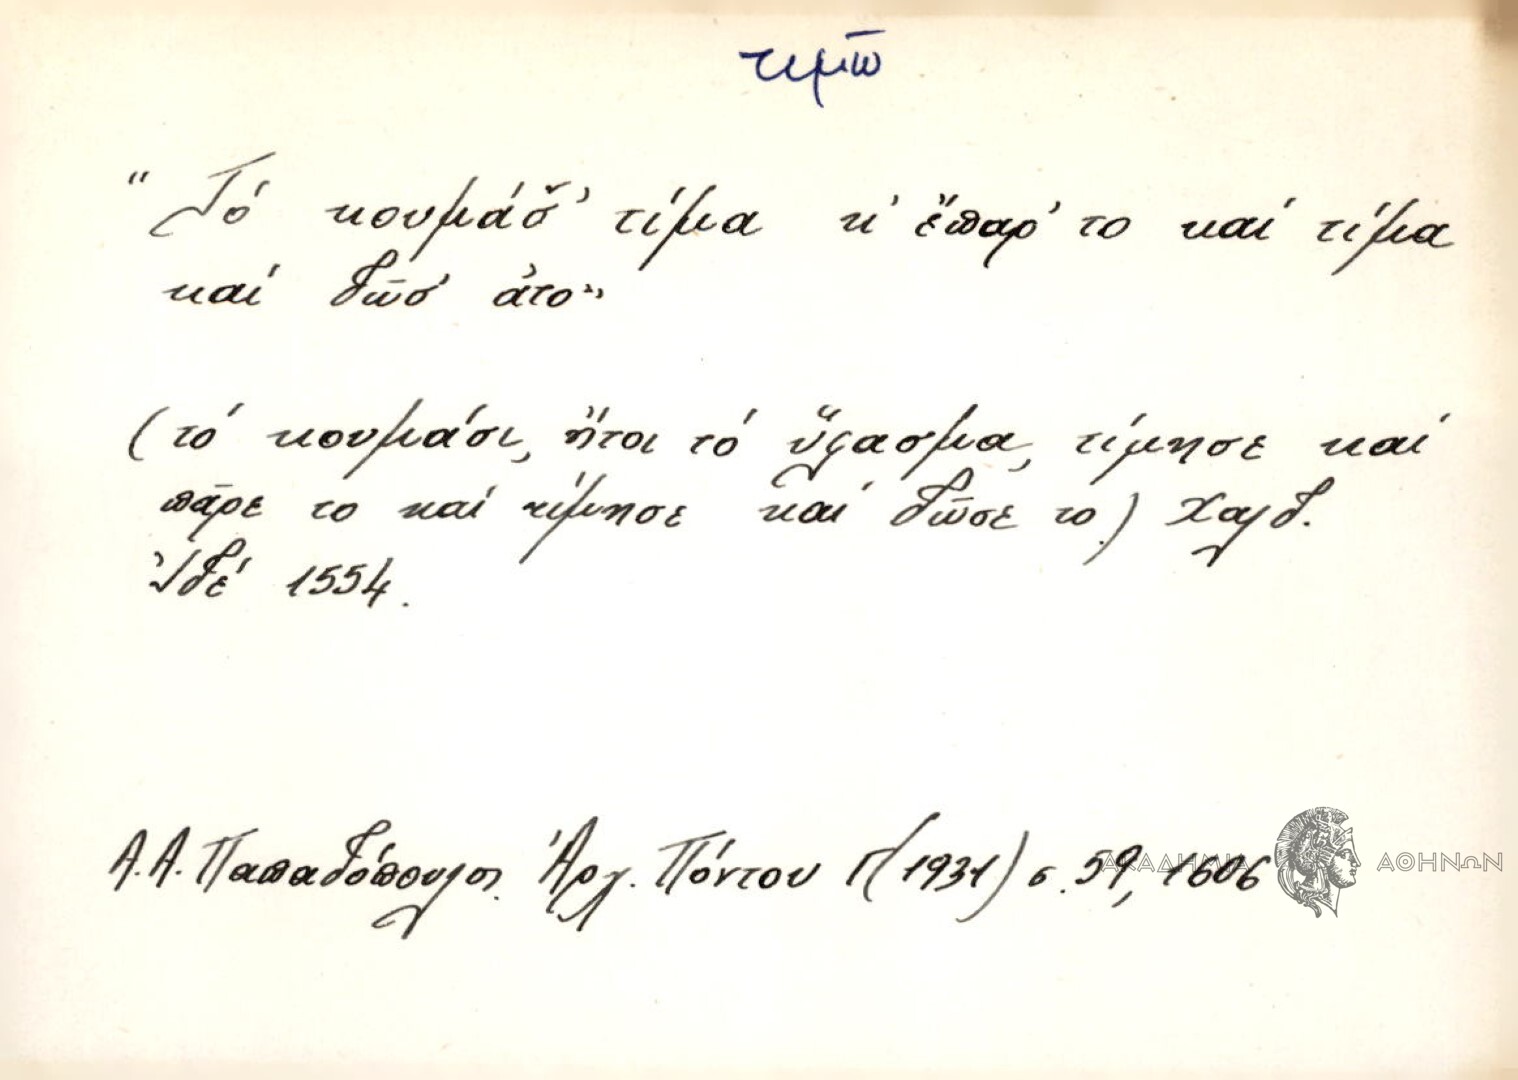 τιμῶ
“Τό κουμάσ̌’ τίμα κ’ ἔπαρ’ το καί τίμα
καί δῶσ’ ἀτο”
(τό κουμάσι, ἤτοι τό ὕφασμα, τίμησε καί
πᾶρε το καί τίμησε καί δῶσε το) Χαλδ.
Ἰδέ 1554.
Α.Α. Παπαδόπουλος. Ἀρχ. Πόντου Γ (1931) σ. 59, 1606
ΑΚΑΔΗΜΙΑ ΑΘΗΝΩΝ